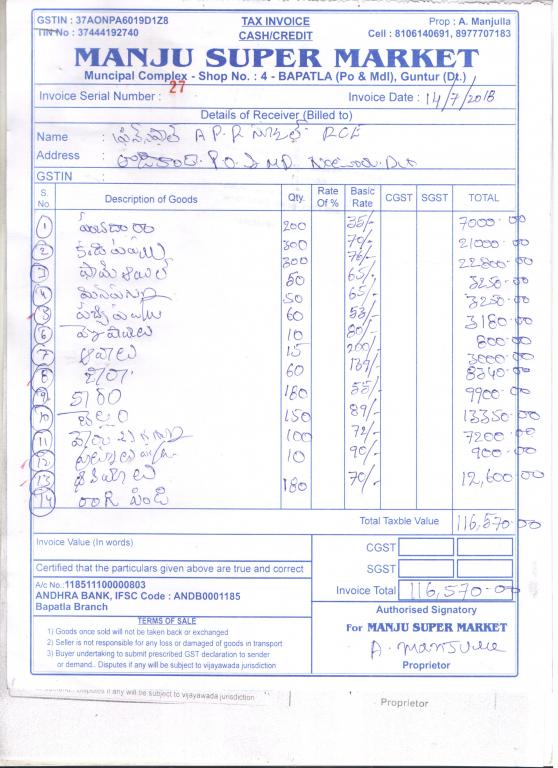 GSTIN : 37AONPA6019D1Z8
TAX INVOICE
Prop : A. Manjulla
TIN No : 37444192740
CASH/CREDIT
Cell : 8106140691, 8977707183
MANJU SUPER MARKET
Muncipal Complex - Shop No. : 4 - BAPATLA (Po & Mdl), Guntur (Dt.)
Invoice Serial Number : 27
Invoice Date : 14/7/2018
Details of Receiver (Billed to)
Name : ప్రిన్సిపాల్ A P R RCE
Address :
GSTIN :
S. No. Description of Goods Qty. Rate Of % Basic Rate CGST SGST TOTAL
1 పంచదార 200 35/- 7000-00
2 కందిపప్పు 300 70/- 21000-00
3 పామాయిల్ 300 76/- 22800-00
4 మినపగుళ్ళు 50 65/- 3250-00
5 పెసరపప్పు 50 65/- 3250-00
6 60 53/- 3180-00
7 ఆవాలు 10 80/- 800-00
8 జీరా 15 200/- 3000-00
9 కారం 60 139/- 8340-00
10 బెల్లం 180 55/- 9900-00
11 150 89/- 13350-00
12 100 72/- 7200-00
13 ధనియాలు 10 90/- 900-00
14 పిండి 180 70/- 12,600-00
Total Taxble Value 116,570-00
Invoice Value (In words)
CGST
Certified that the particulars given above are true and correct
SGST
A/c No.:118511100000803
Invoice Total 116,570-00
ANDHRA BANK, IFSC Code : ANDB0001185
Bapatla Branch
Authorised Signatory
TERMS OF SALE
For MANJU SUPER MARKET
1) Goods once sold will not be taken back or exchanged
2) Seller is not responsible for any loss or damaged of goods in transport
A. Manjula
3) Buyer undertaking to submit prescribed GST declaration to sender
or demand.. Disputes if any will be subject to vijayawada jurisdiction
Proprietor
Disputes if any will be subject to vijayawada jurisdiction
Proprietor